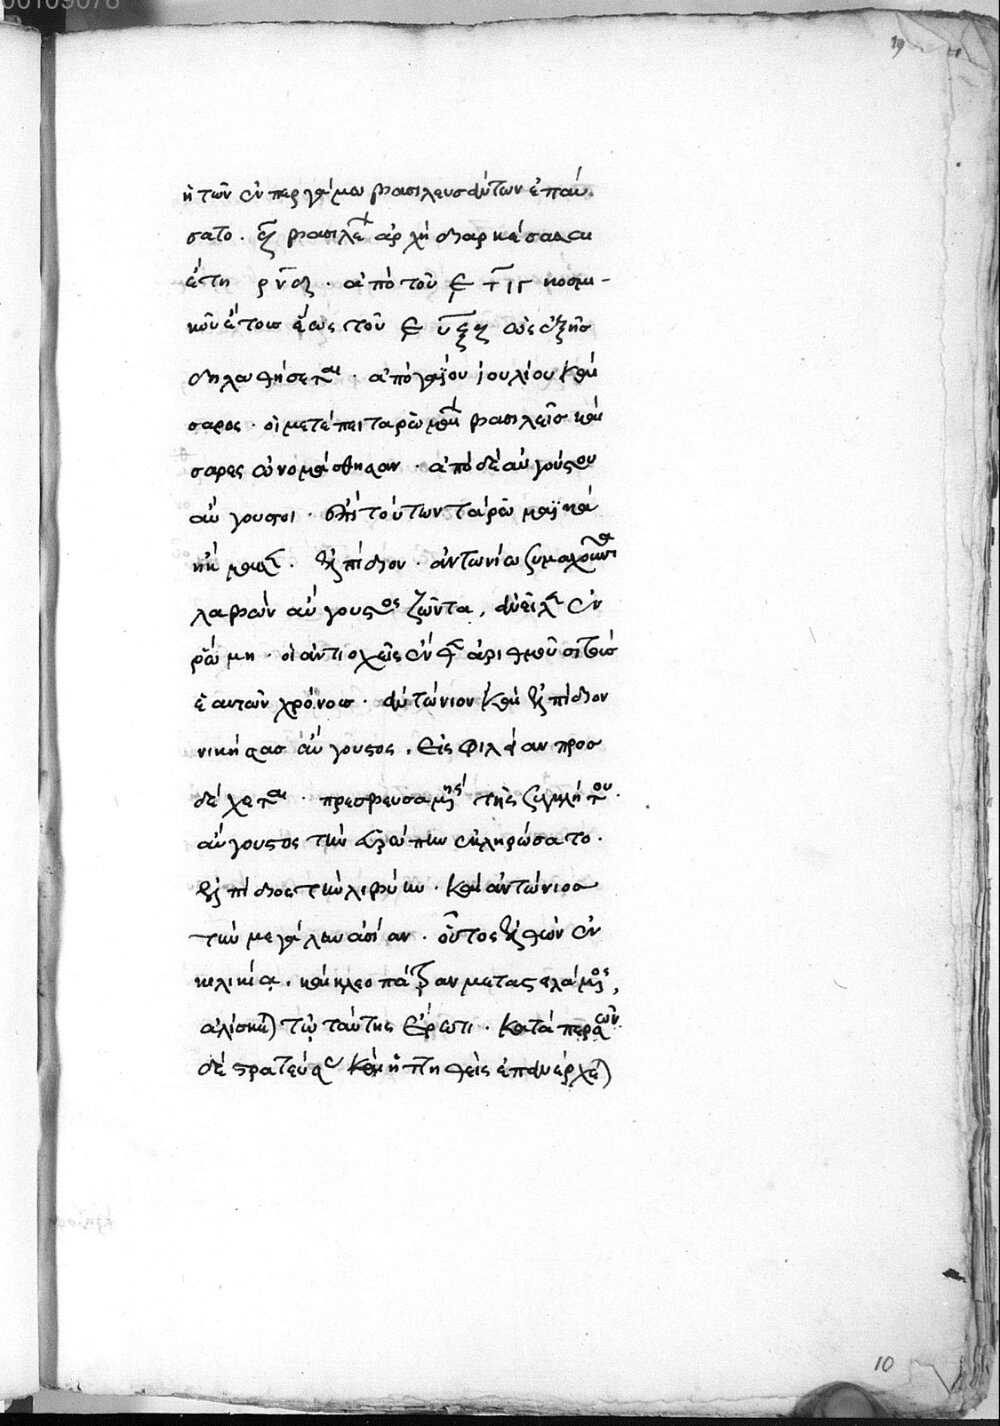 00109078
19
ἡ τῶν ἐν περγάμω βασιλευσάντων ἐπαύ
σατο. βασιλε ἀρχὴ διαρκέσασα
ἔτη ρνδ. ἀπὸ τοῦ ͵ε τιγ κοσμι-
κοῦ ἔτους ἕως τοῦ ͵ε υξζ ὡς ἑξῆς
δηλωθήσεται. ἀπὸ γαΐου ϊουλίου καί
σαρος. οἱ μετέπειτα ῥωμαι βασιλεῖς καί
σαρες ὠνομάσθησαν. ἀπὸ δὲ αὐγούστου
αὔγουστοι. ἐπὶ τούτων τὰ ῥωμαϊκὰ
ἤκμασε. λέπιδον. ἀντωνίω συμμαχοῦντα
λαβὼν αὔγουστος ζῶντα, ἀνεῖλεν ἐν
ῥώμη. οἱ ἀντιοχεῖς ἐντεῦθεν ἀριθμοῦσι τοὺς
ἑαυτῶν χρόνους. ἀντώνιον καὶ λέπιδον
νικήσας αὔγουστος. εἰς φιλίαν προσ
δέχεται. πρεσβευσαμένης τῆς συγκλήτου.
αὔγουστος τὴν εὐρώπην ἐκληρώσατο.
λέπιδος τὴν λιβύην. καὶ ἀντώνιος
τὴν μεγάλην ἀσίαν. οὗτος ἐλθὼν ἐν
κιλικία. καὶ κλεοπάτραν μεταστειλάμενος,
ἁλίσκεται τῶ ταύτης ἔρωτι. κατὰ περσῶν
δὲ στρατεύσας καὶ ἡττηθεὶς ἐπανέρχεται
10